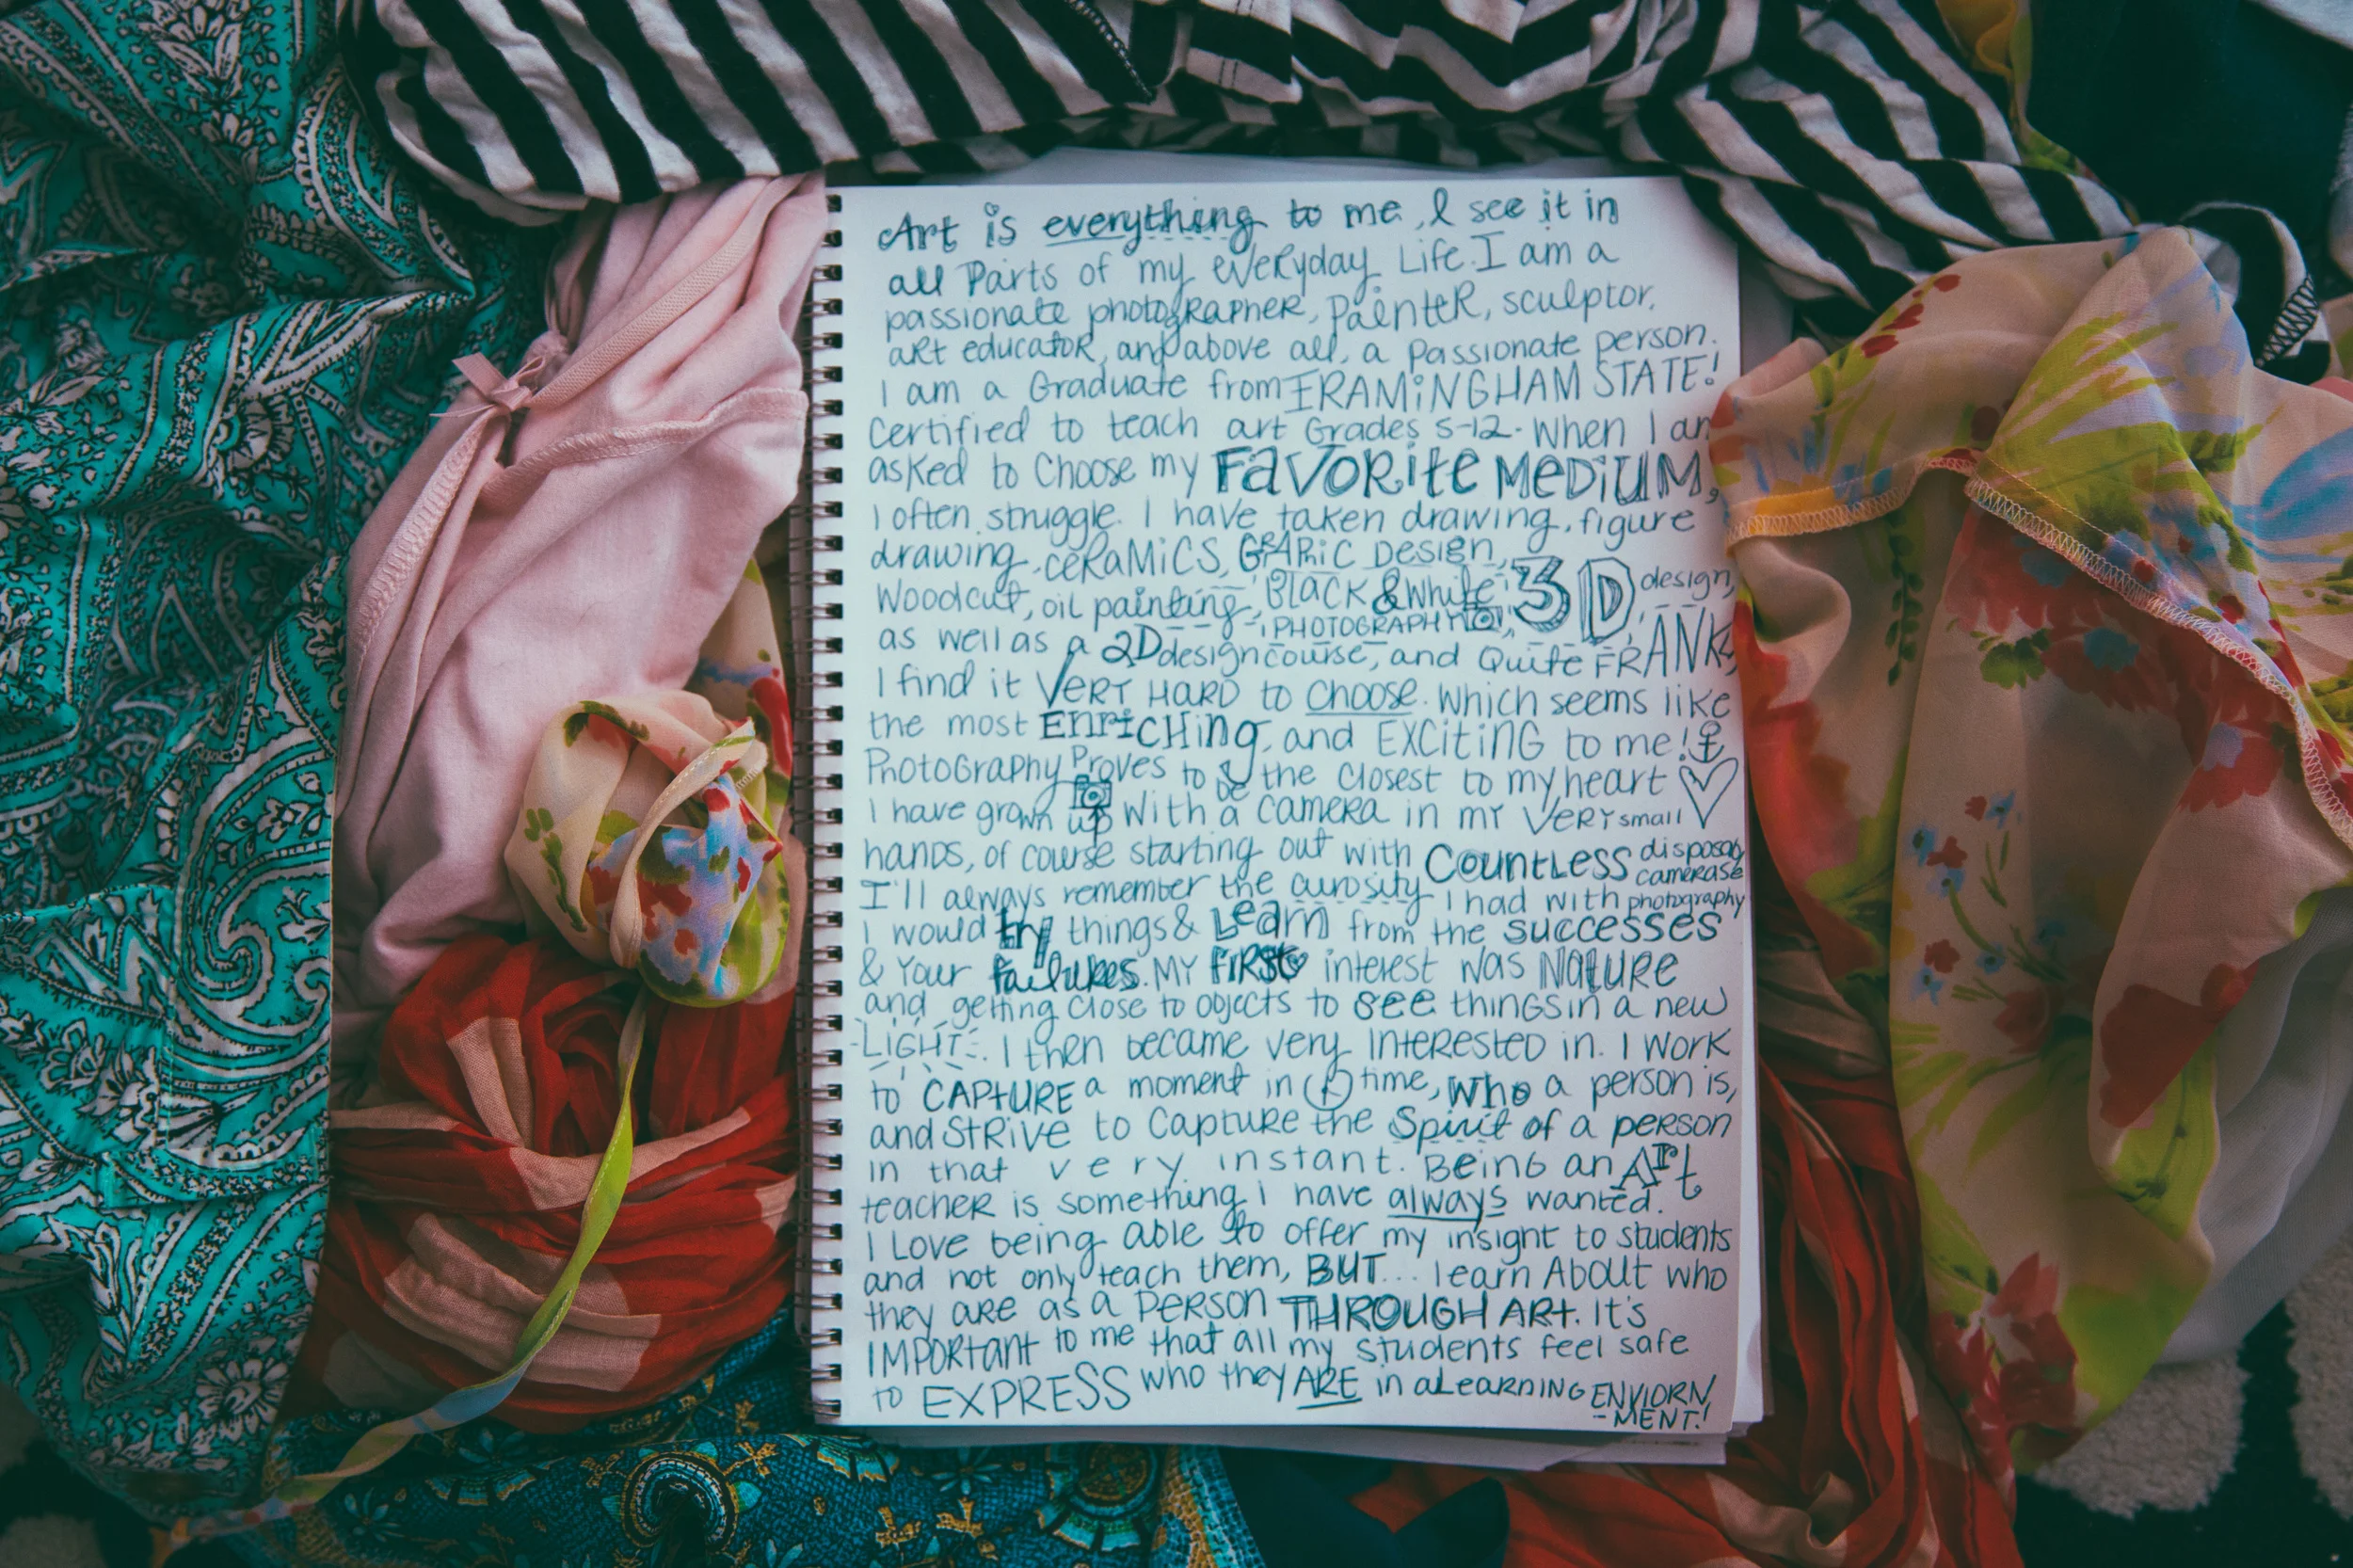 Art is everything to me, I see it in
all Parts of my everyday Life. I am a
passionate photographer, painter, sculptor,
art educator, and above all, a passionate person.
I am a Graduate from FRAMiNGHAM STATE!
Certified to teach art Grades 5-12. When I am
asked to Choose my FAVORite MeDiUM,
I often struggle. I have taken drawing, figure
drawing, ceRaMiCS, GRAPHiC Design,
Woodcut, oil painting, Black & White PHOTOGRAPHY, 3D design,
as well as a 2D design course, and Quite FRANK,
I find it VERY HARD to choose. Which seems like
the most ENriCHing, and EXCiTiNG to me!
PhotoGraphy Proves to be the Closest to my heart
I have grown up With a camera in my VERY small
hands, of course starting out with Countless disposab camerase
I'll always remember the curosity I had with photography
I would try things & Learn from the successes
& Your failures. MY first interest was NATURE
and getting close to objects to see things in a new
LIGHT. I then became very INTERESTED in. I WORK
to CAPTURE a moment in time, who a person is,
and STRIVE to Capture the Spirit of a person
in that very instant. Being an Art
teacher is something I have always wanted.
I Love being able to offer my insight to students
and not only teach them, BUT... learn About who
they are as a PERSON THROUGH ART. It's
IMPORtant to me that all my students feel safe
to EXPRESS who they ARE in a LEARNING ENVIORN
-MENT!